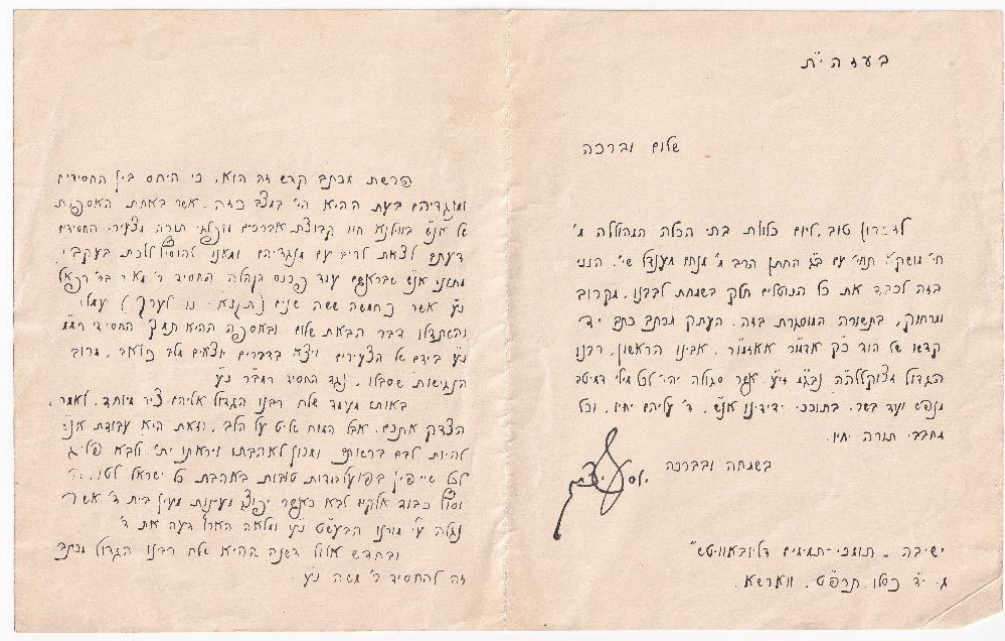 בעזהי״ת
שלום וברכה
לזכרון טוב, ליום כלולת בתי הכלה המהוללה מ׳
חי׳ מושקא תחי׳ עם ב״ג החתן הרב מ׳ מנחם מענדל שי׳, הנני
בזה לכבד את כל הנוטלים חלק בשמחת לבבנו, מקרוב
ומרחוק, בתשורה המוסגרת בזה, העתק מכתב כתב יד
קדשו של הוד כ״ק אדמו״ר אאזמו״ר, אבינו הראשון, רבנו
הגדול נבג״מ זי״ע, אשר סגולה יהי׳ לכל מילי דמיטב
מנפש ועד בשר, בתוככי ידידינו אנ״ש, ד׳ עליהם יחיו, וכל
מחבבי תורה יחיו.
בשמחה ובברכה
יוסף יצחק
ישיבה ״תומכי-תמימים דליובאוויטש״
ג׳ י״ד כסלו תרפ״ט, ווארשא.
פרשת מכתב קדש זה הוא, כי היחס בין החסידים
ומנגדיהם בעת ההיא הי׳ במצב כזה, אשר באחת האספות
של אנ״ש בווילנא היו קבוצת אברכים מופלגי תורה מצעירי החסידים
דעתם לצאת לריב עם מנגדיהם ומאנו ללכת בעקבי
מתוני אנ״ש שבראשם עוד כפרנס הקהלה החסיד ר׳ מאיר בר׳ רפאל
נ״ע אשר כחמשה ששה שנים
והשתדלו דבר הבאת שלום ובאספה ההיא תמך החסיד
נ״ע בידם של הצעירים ויצא בדברים יוצאים מלב כואב, מרוב
הנגישות שסבלו, נגד החסיד נ״ע
באותו מעמד שלח רבנו הגדול אליהם ציר מיוחד, לאמר,
הצדק אתכם, אבל המוח שליט על הלב, וזאת היא עבודת אנ״ש
להיות לבם ברשותם ומכוון לאהבתו ויראתו ית׳
טובות באהבת כל ישראל
כבוד אלקים לבא כאשר יפוצו מעינות מעין בית ד׳ אשר
נגלה ע״י מורנו הבעש״ט נ״ע ומלאה הארץ דעה את ד׳
ובחדש אלול דשנה ההיא שלח רבנו הגדול מכתב
זה להחסיד ר׳ משה נ״ע